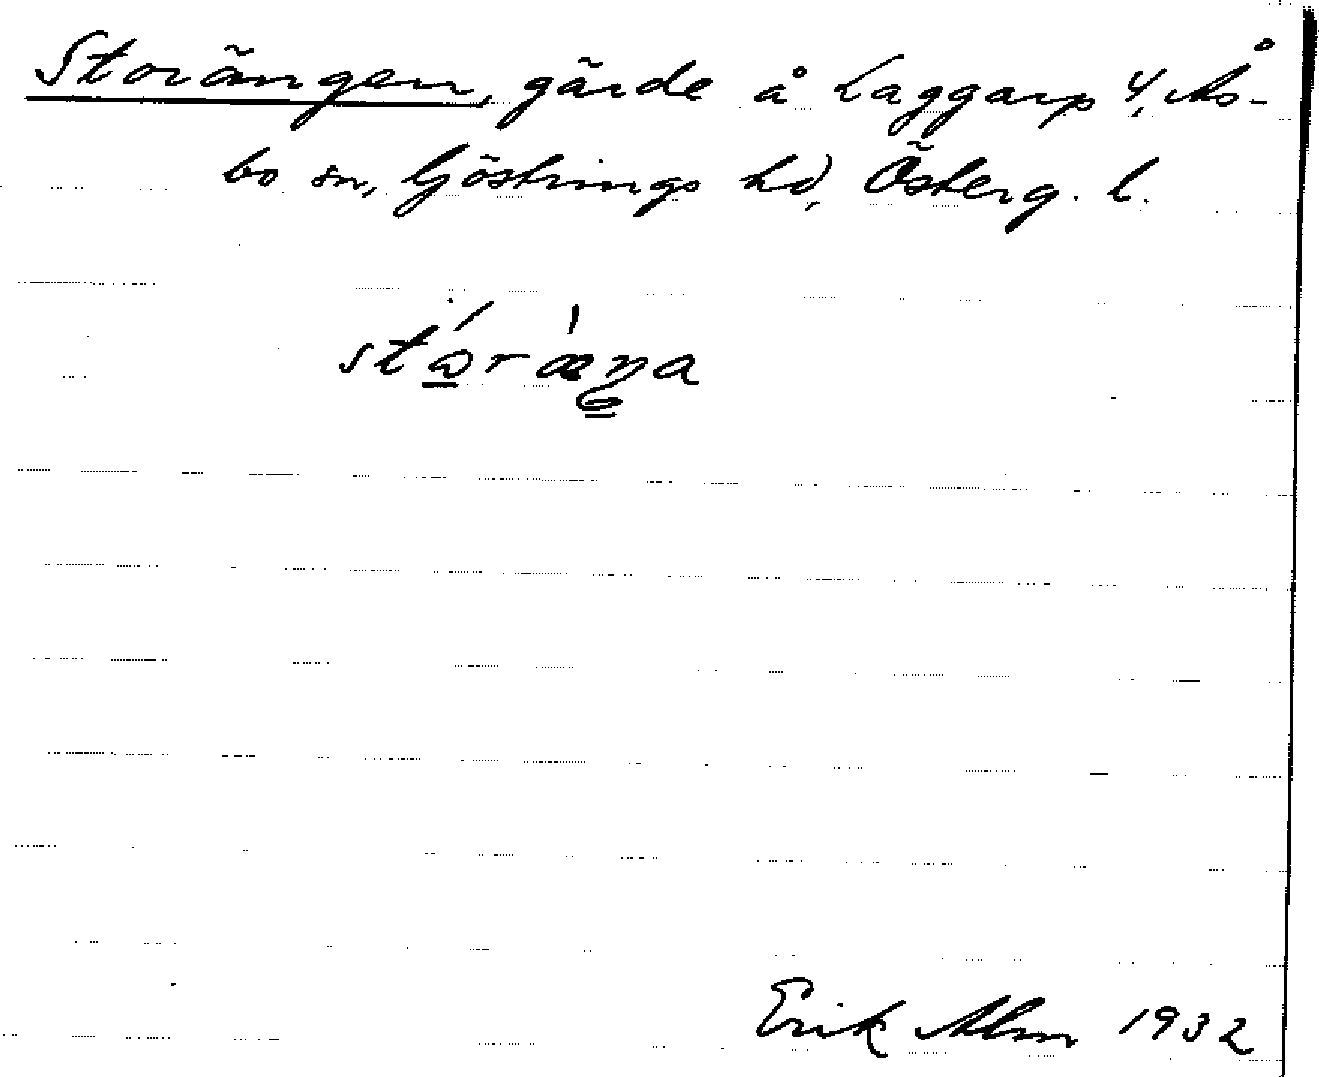 Storängen, gärde å Laggarp 4, Ås-
bo sn, Göstrings hd, Österg. l.
Erik Alm 1932